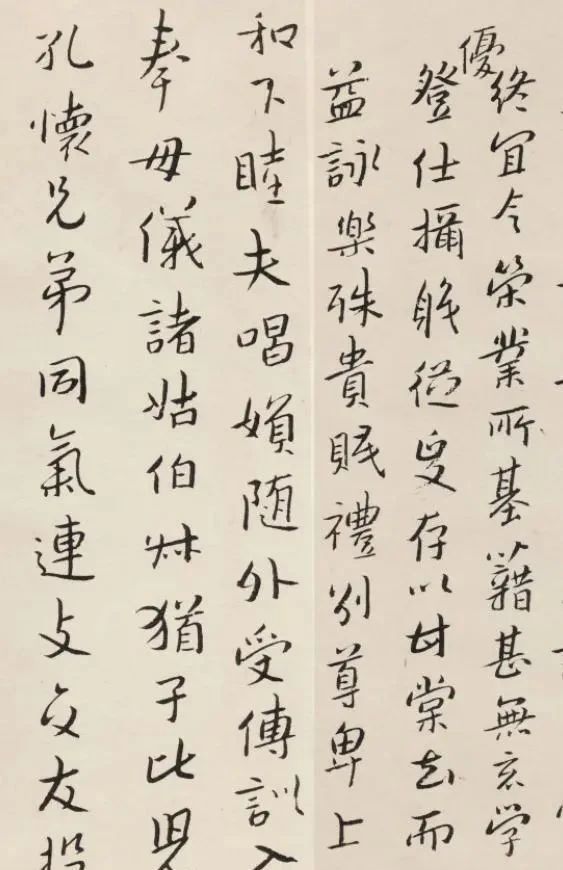 終宜令榮業所基籍甚無竟学
優登仕攝職從政存以甘棠去而
益詠樂殊貴賤禮別尊卑上
和下睦夫唱婦随外受傅訓入
奉母儀諸姑伯叔猶子比兒
孔懷兄弟同氣連枝交友投